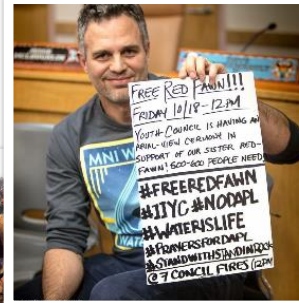 FREE RED FAWN!!!
FRIDAY 10/18-12PM
YOUTH-COUNCIL IS HAVING AN
ARIAL-VIEW CEREMONY IN
SUPPORT OF OUR SISTER RED-
FAWN! 500-600 PEOPLE NEED
#FREEREDFAWN
#IIYC #NODAPL
#WATERISLIFE
#PRAYERSFORDAPL
#STANDWITHSTANDINROCK
@ 7 CONCIL FIRES (12PM
MNI W
WATE